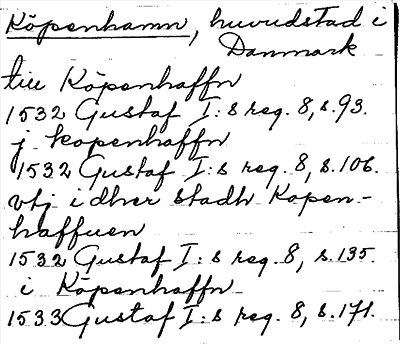 Köpenhamn, huvudstad i
Danmark
till Köpenhaffn
1532 Gustaf I:s reg. 8, s. 93.
j kopenhaffn
1532 Gustaf I:s reg. 8, s. 106.
vtj idher stadh Kopen-
haffuen
1532 Gustaf I:s reg. 8, s. 135.
i Köpenhaffn
1533 Gustaf I:s reg. 8, s. 171.